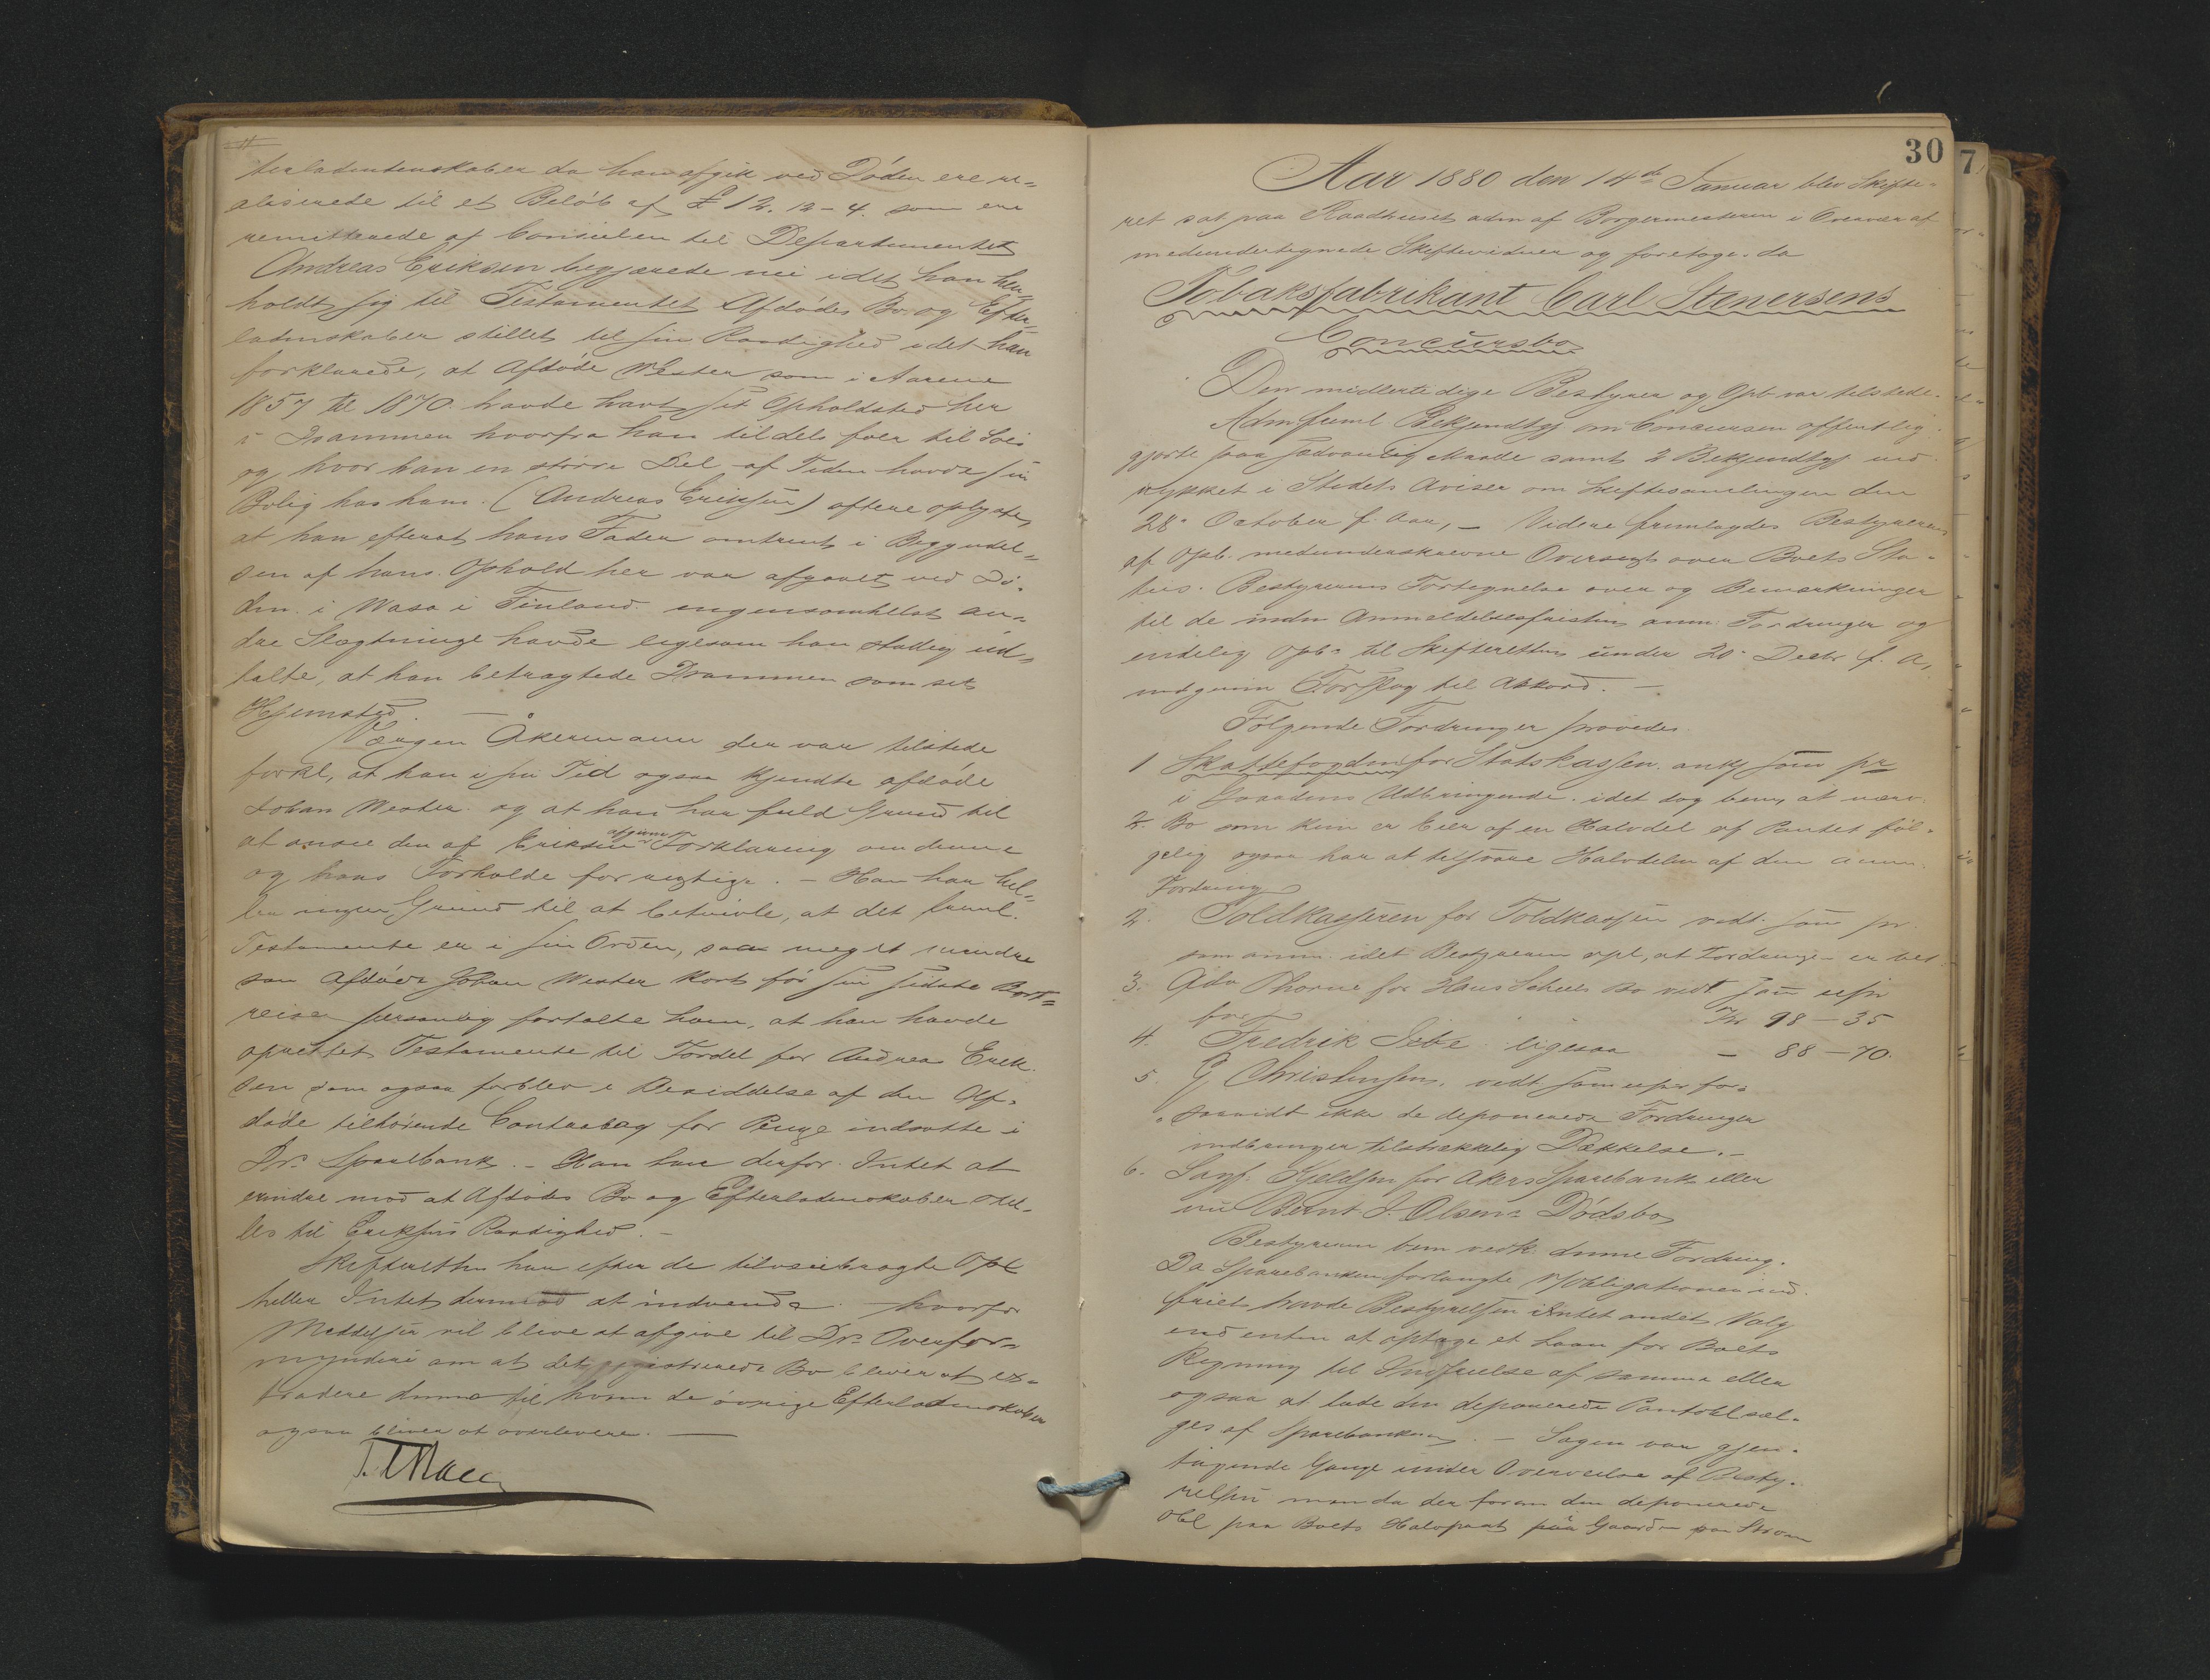 terladenskaber da han afgik ved Døden ere re-
aliserede til et Beløb af £ 12. 12 - 4. som ere
remitterede af Consulen til Departementet
Andreas Eriksen begjærede nu idet han hen-
holdt sig til Testamentet Afdødes Bo og Efter-
ladenskaber stillet til sin Raadighed idet han
forklarede, at Afdøde Wester som i Aarene
1857 til 1870 havde havt sit Opholdsted her
i Drammen hvorfra han tildels foer til Søes
og hvor han en større Del af Tiden havde sin
Bolig hos ham. (Andreas Eriksen) oftere oplyste,
at han efterat hans Fader omtrent i Begyndel-
sen af hans Ophold her var afgaaet ved Dø-
den i Wasa i Finland ingensomhelst an-
dre Slægtninge havde ligesom han stadig ud-
talte, at han betragtede Drammen som set
Hjemsted. —
Værgen Åkermann der var tilstede
forkl, at han i sin Tid ogsaa kjendte afdøde
Johan Wester og at han har fuld Grund til
at ansee den af Eriksen afgivne Forklaring om denne
og hans Forholde for rigtige. — Han har hel-
ler ingen Grund til at betvivle, at det freml.
Testamente er i sin Orden, saa meget mindre
som Afdøde Johan Wester kort før sin sidste Bort-
reise personlig fortalte ham, at han havde
oprettet Testamente til Fordel for Andreas Erik-
sen som ogsaa forblev i Besiddelse af den Af-
døde tilhørende Contrabog for Penge indsatte i
Drs Sparebank. — Han har derfor Intet at
erindre mod at Afdødes Bo og Efterladenskaber stil-
les til Eriksens Raadighed. —
Skifteretten har efter de tilveiebragte Opl
heller Intet dermod at indvende hvorfor
Meddelse vil blive at afgive til Drs Overfor-
mynderi om at det registrerede Bo bliver at ex-
tradere denne til hvem de øvrige Efterladenskaber
ogsaa bliver at overlevere. —
30
7
Aar 1880 den 14de Januar blev Skifte-
ret sat paa Raadhuset adm af Borgermesteren i Overvær af
medundertegnede Skiftevidner og foretoges da
Tobaksfabrikant Carl Stenersens
Concursbo
Den midlertidige Bestyrer og Opb var tilstede.
Adm freml Bekjendtgj om Concursen offentlig-
gjorte paa sædvanlig Maade samt 2 Bekjendtgj ind-
rykket i Stadets Aviser om Skiftesamlingen den
28de October f. Aar, — Videre fremlagdes Bestyrerens
af Opb. medunderskrevne Oversigt over Boets Sta-
tus. Bestyrerens Fortegnelse over og Bemærkninger
til de inden Anmeldelsesfristen anm. Fordringer og
endelig Opbs til Skifteretten under 20de Decbr f. A,
indgivne Forslag til Akkord. —
Følgende Fordringer prøvedes
1 Skattefogden for Statskassen. ankj som pr
i Gaardens Udbringende. idet dog bem, at nærv.
Bo som kun er Eier af en Halvdel af Pantet føl-
gelig ogsaa har at tilsvare Halvdelen af den anm.
Fordring
2. Toldkasseren for Toldkassen vedt som pr.
som anm. idet Bestyreren opl, at Fordringen er bet
3. Adv Thorne for Hans Scheels Bo vedt som upr
for Kr 98 — 35
4. Fredrik Sebe ligesaa — 88 — 70.
5. G Christensen. vedt som upr for-
saavidt ikke de deponerede Fordringer
indbringer tilstrækkelig Dækkelse. —
6. Sagf. Kjeldsen for Akers Sparebank eller
nu Bernt J. Olsens Dødsbo
Bestyreren bem vedk denne Fordring.
Da Sparebanken forlangte Obligationen ind-
friet havde Bestyrelsen intet andet Valg
end enten at optage et Laan for Boets
Regning til Indfrielse af samme eller
ogsaa at lade den deponerede Pantobl sæl-
ges af Sparebanken. — Sagen var gjen-
tagende Gange under Overveielse af Besty-
relsen men da der foran den deponerede
Obl paa Boets Halvpart paa Gaarden paa Strøm